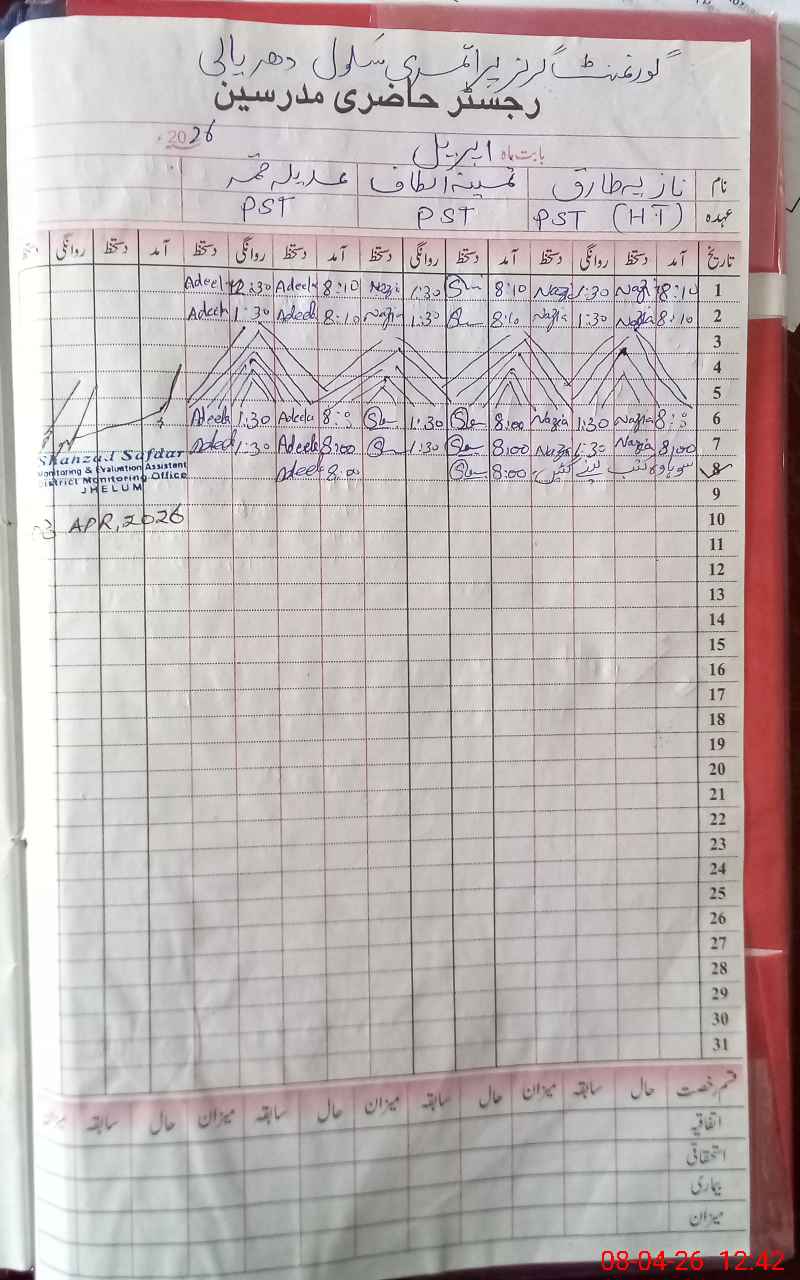 گورنمنٹ گرلز پرائمری سکول دھریالی
رجسٹر حاضری مدرسین
بابت ماہ اپریل 2026
نام نازیہ طارق ثمینہ الطاف عدیلہ
عہدہ PST (HT) PST PST
تاریخ آمد دستخط روانگی دستخط آمد دستخط روانگی دستخط آمد دستخط روانگی دستخط آمد دستخط روانگی
1 8:10 Nazia 1:30 Nazia 8:10 1:30 Nazi 8:10 Adeela 12:30 Adeela
2 8:10 Nazia 1:30 Nazia 8:10 1:30 Nazia 8:10 Adeela 1:30 Adeela
3
4
5
6 8:00 Nazia 1:30 Nazia 8:00 1:30 8:00 Adeela 1:30 Adeela
7 8:00 Nazia 1:30 Nazia 8:00 1:30 8:00 Adeela 1:30 Adeela
8 سوہاوہ کتب لینے گئیں 8:00 8:00 Adeela
Shanza.1 Safdar
Monitoring & Evaluation Assistant
District Monitoring Office
JHELUM
APR, 2026
9
10
11
12
13
14
15
16
17
18
19
20
21
22
23
24
25
26
27
28
29
30
31
قسم رخصت حال سابقہ میزان حال سابقہ میزان حال سابقہ میزان حال سابقہ میزان
اتفاقیہ
استحقاقی
بیماری
میزان
08-04-26 12:42